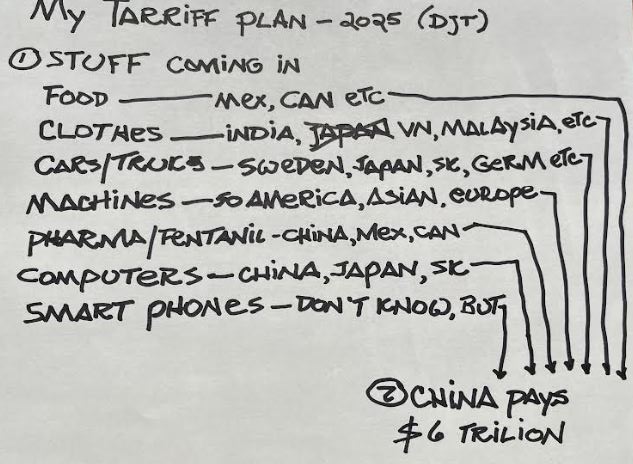 My TARRiFF PLAN - 2025 (DJT)
① STUFF COMING IN
FOOD — MEX, CAN ETC
CLOTHES — INDIA, JAPAN VN, MALAYSIA, ETC
CARS/TRUKS — SWEDEN, JAPAN, SK, GERM ETC
MACHINES — SO AMERICA, ASIAN, EUROPE
PHARMA/FENTANIL - CHINA, MEX, CAN
COMPUTERS — CHINA, JAPAN, SK
SMART PHONES — DON'T KNOW, BUT
② CHINA PAYS
$6 TRILION